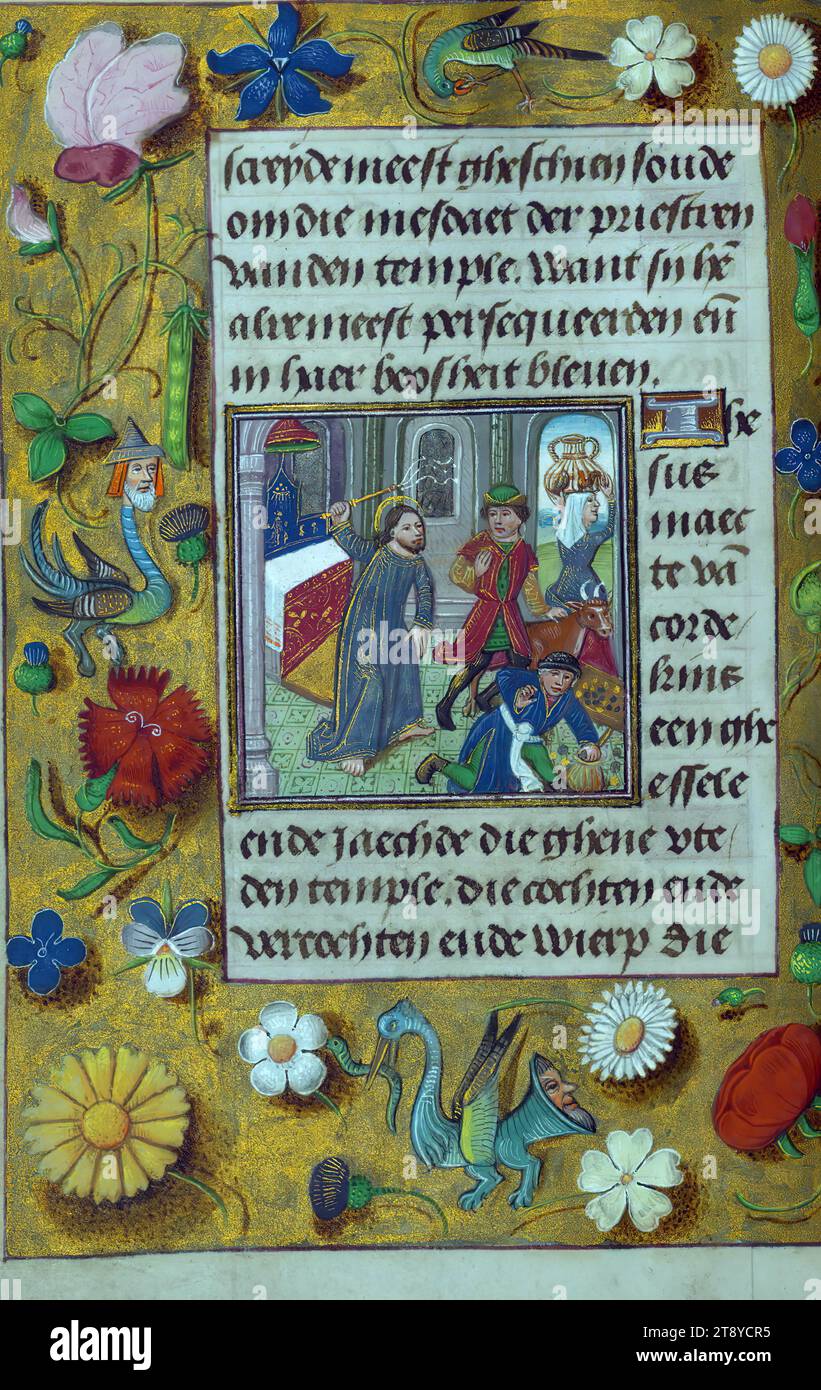 screyde meest gheschien soude
om die mesdaet der priestren
vanden temple. Want sij hē
alremeest persequeerden eñ
in haer boosheit bleuen.
Ihe
sus
maec
te vā
corde
kins
een ghe
essele
ende Jaechde die ghene vte/
den temple. die cochten ende
vercochten ende wierp die
alamy
a
alamy
Image ID: 2T8YCR5
www.alamy.com